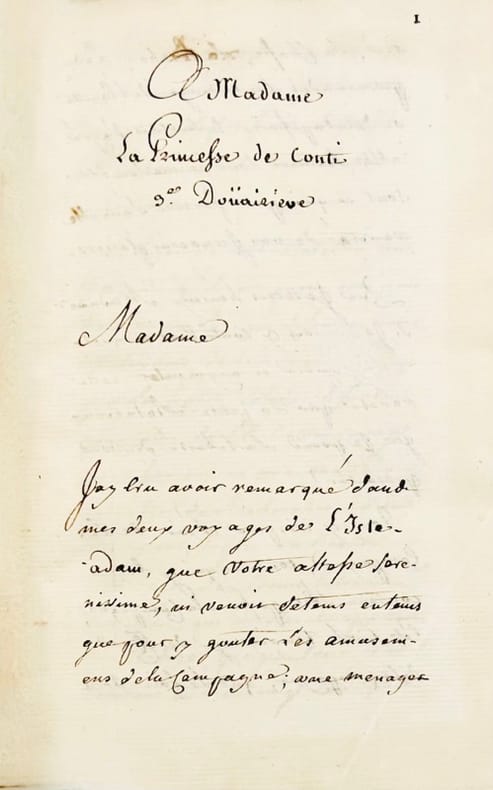 1
A Madame
La Princesse de Conti
3.e Doüairiere
Madame
J'ay Cru avoir remarqué dans
mes deux voyages de L'Isle-
adam, que Votre altesse sere-
nissime, ni venoit de tems en tems
que pour y gouter Les amusem-
ens dela Campagne; une menager